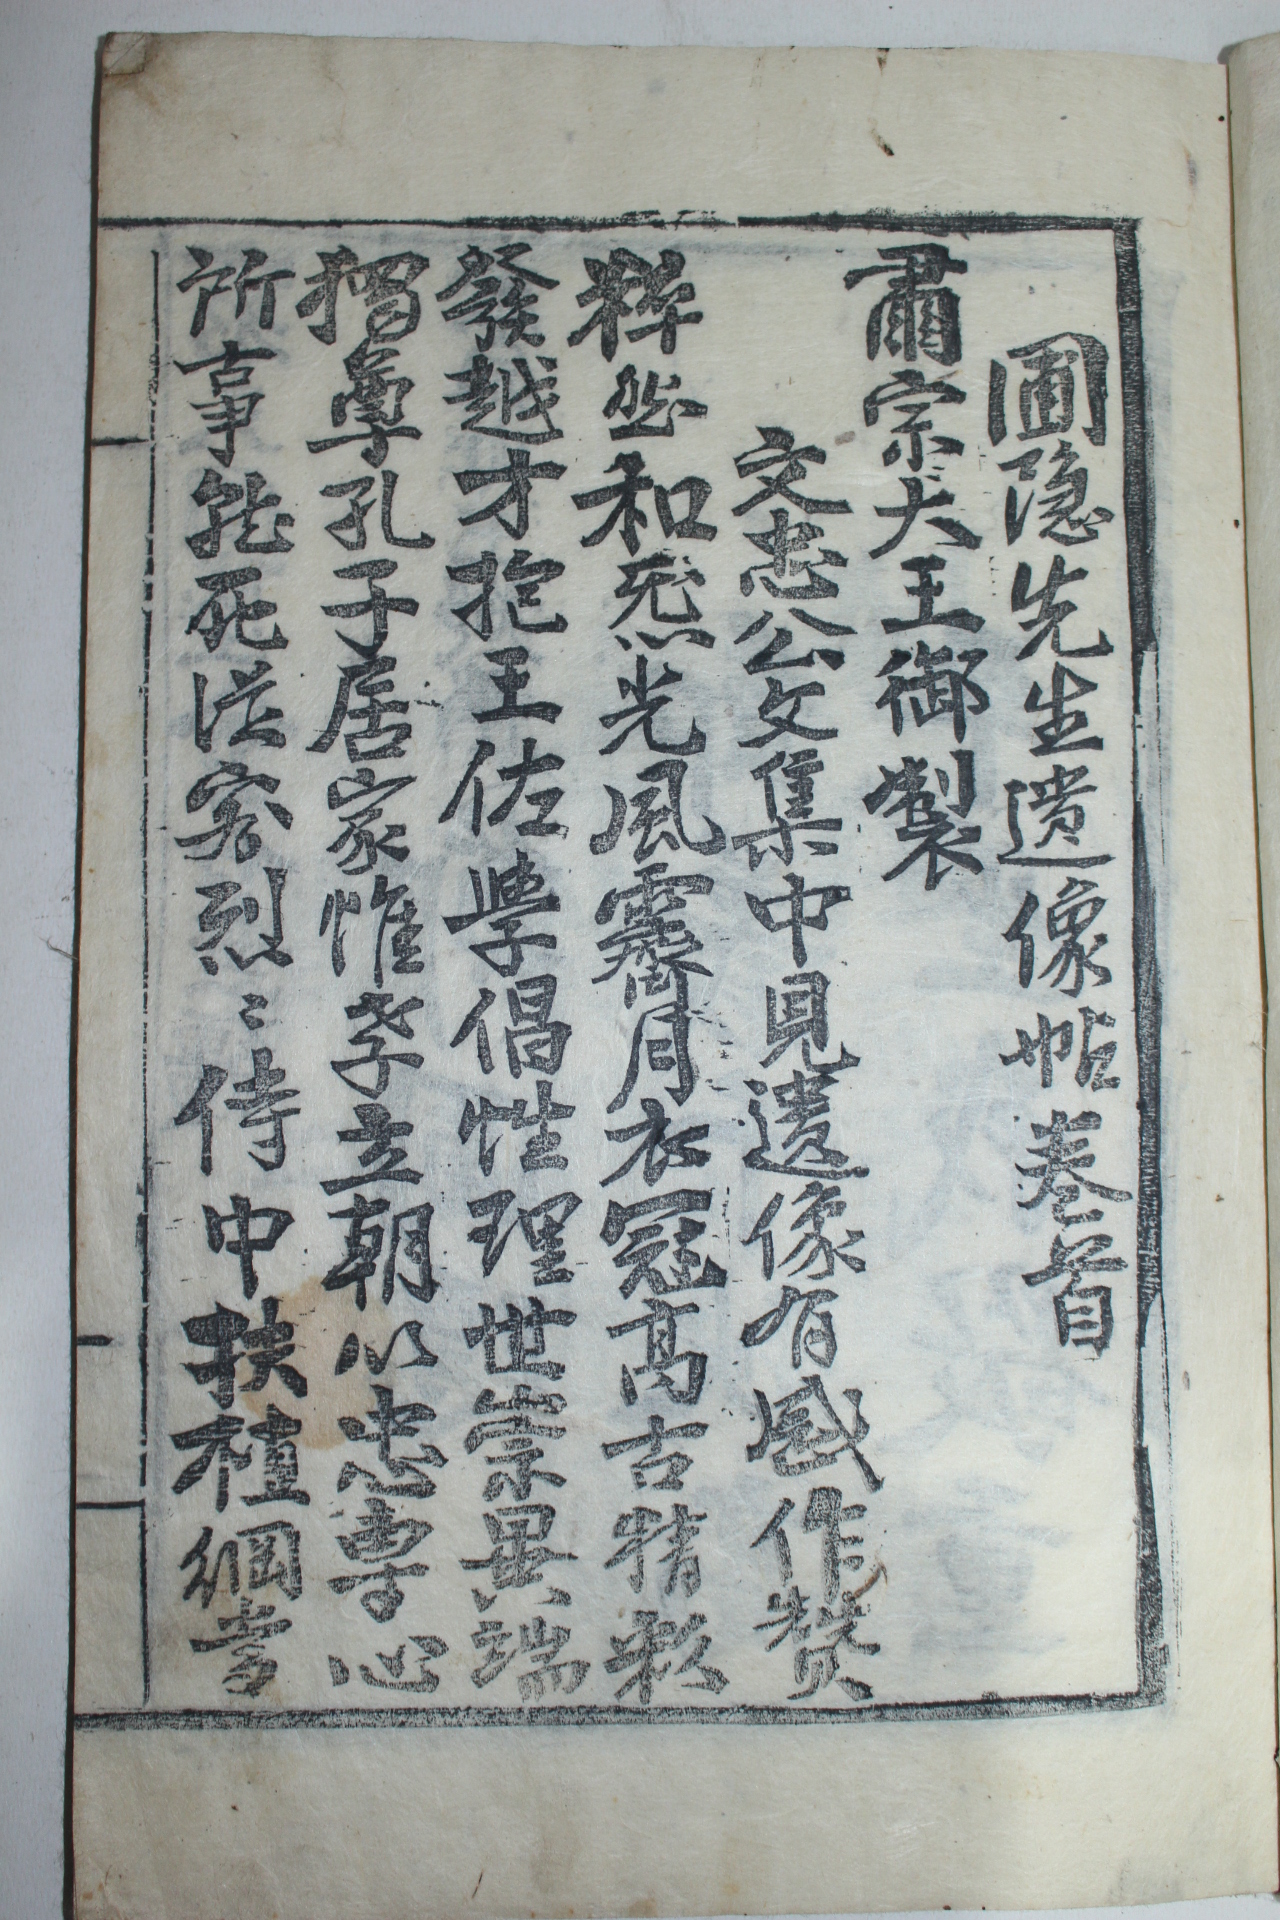 圃隐先生遗像帖卷首
肅宗大王御製
文忠公文集中見遺像有感作赞
粹然和氣光風霽月衣冠高古精彩
發越才抱王佐學倡性理世崇異端
獨尊孔子居家惟孝立朝以忠專心
所事能死從容烈〻侍中扶植綱常